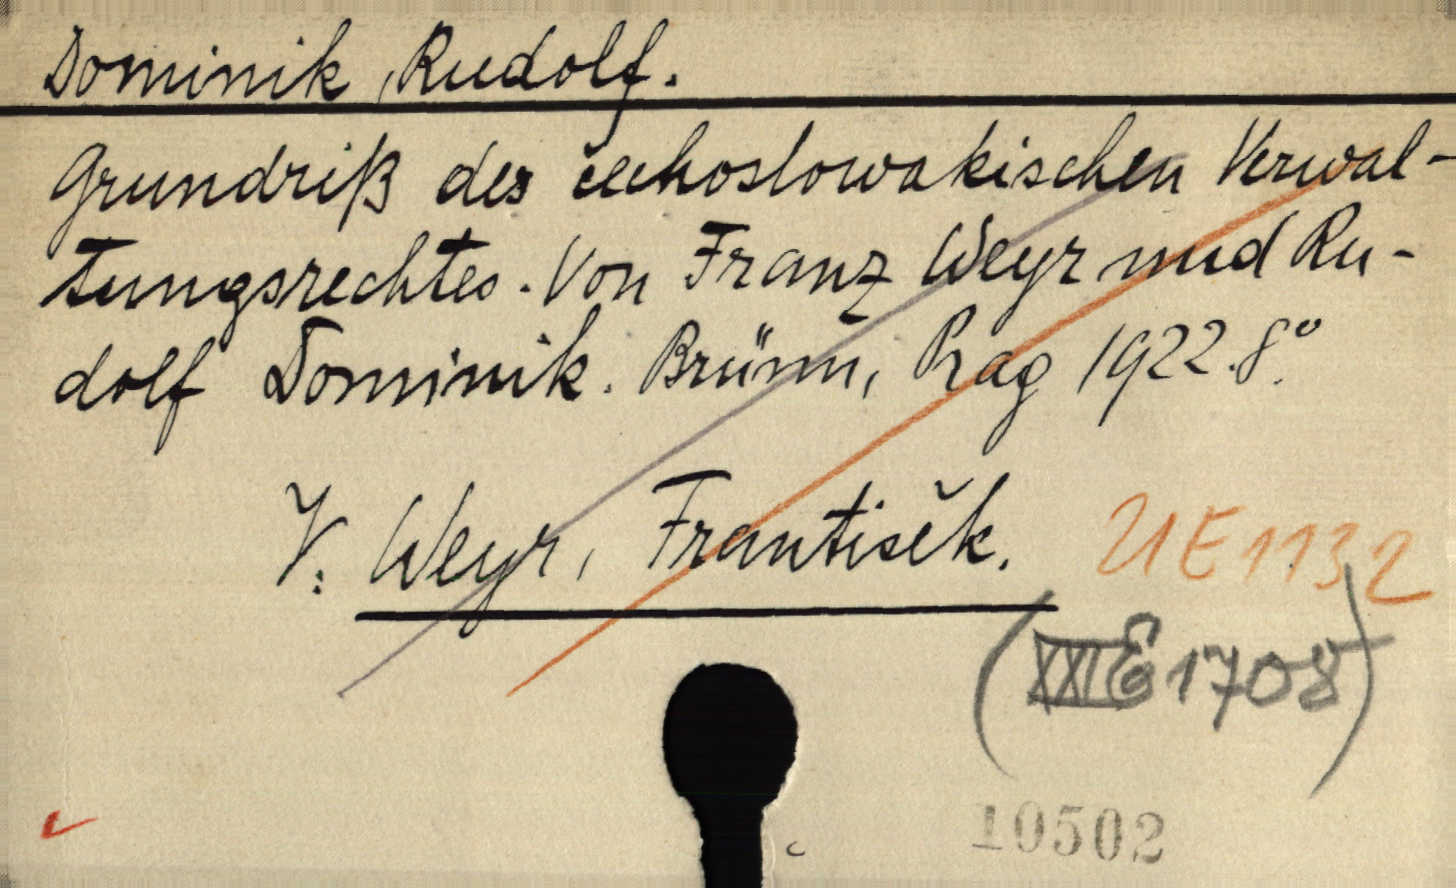 Dominik, Rudolf.
Grundriß des čechoslowakischen Verwal-
tungsrechtes. Von Franz Weyr und Ru-
dolf Dominik. Brünn, Prag 1922. 8°.
V. Weyr, František.
21 E 1132
(XXI E 1708)
10502